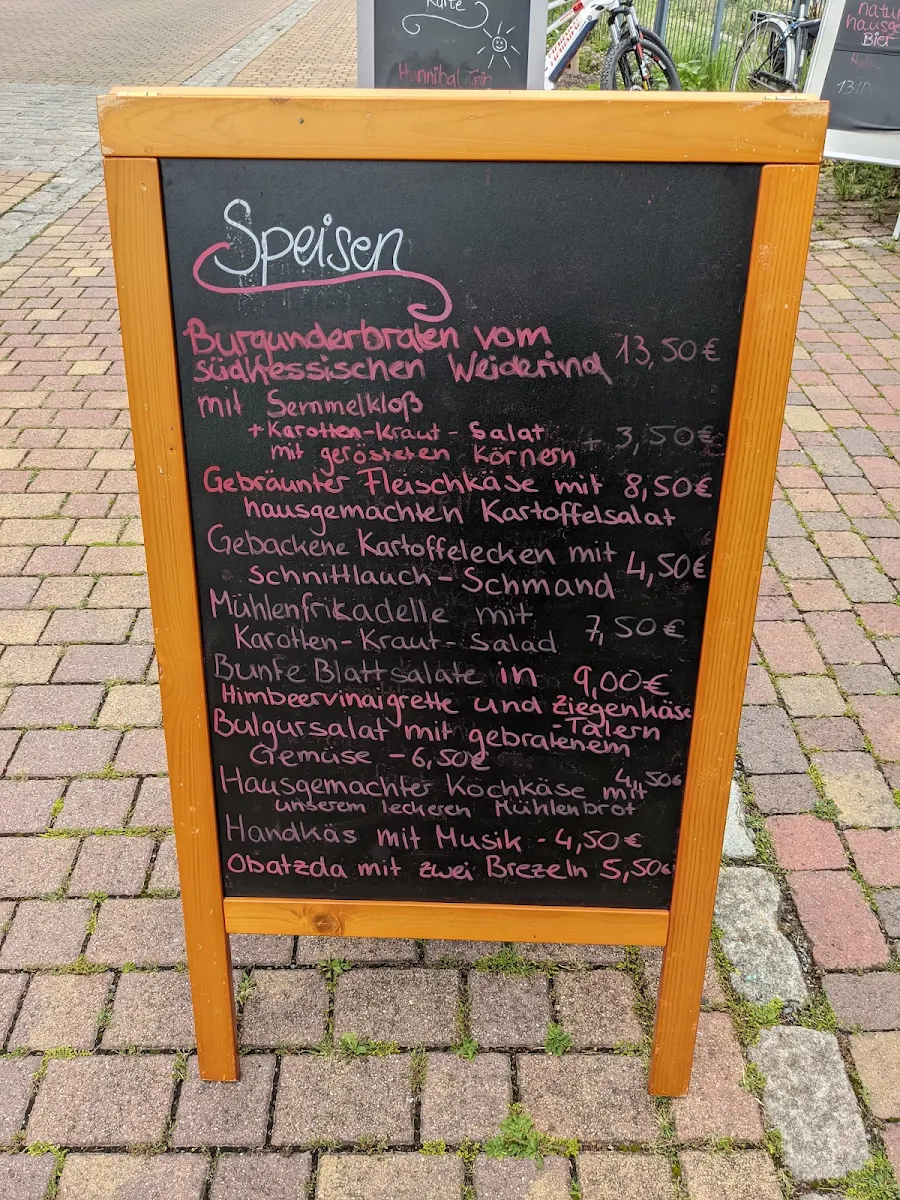 Karte
Hannibal Gin
Bier
Speisen
Burgunderbraten vom
südhessischen Weiderind 13,50€
mit Semmelkloß
+Karotten-Kraut-Salat + 3,50€
mit gerösteten Körnern
Gebräunter Fleischkäse mit 8,50€
hausgemachten Kartoffelsalat
Gebackene Kartoffelecken mit 4,50€
Schnittlauch-Schmand
Mühlenfrikadelle mit 7,50€
Karotten-Kraut-Salad
Bunte Blattsalate in 9,00€
Himbeervinaigrette und Ziegenkäse
-Talern
Bulgursalat mit gebratenem
Gemüse - 6,50€
Hausgemachter Kochkäse mit 4,50€
unserem leckeren Mühlenbrot
Handkäs mit Musik - 4,50€
Obatzda mit zwei Brezeln 5,50€